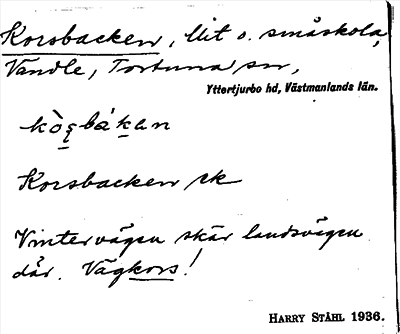 Korsbacken, lht o. småskola,
Vandle, Tortuna sn,
Yttertjurbo hd, Västmanlands län.
Korsbacken ek
Vintervägen skär landsvägen
där. Vägkors!
HARRY STÅHL 1936.